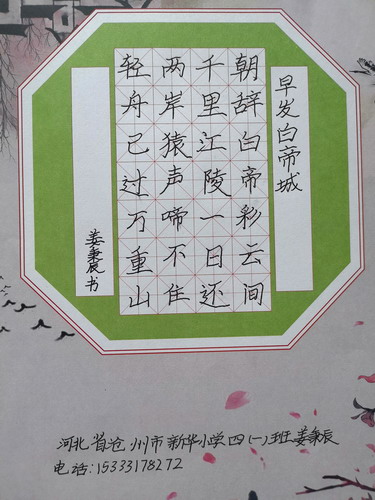 早发白帝城
朝辞白帝彩云间
千里江陵一日还
两岸猿声啼不住
轻舟已过万重山
姜秉辰书
河北省沧州市新华小学四(一)班姜秉辰
电话:15333178272